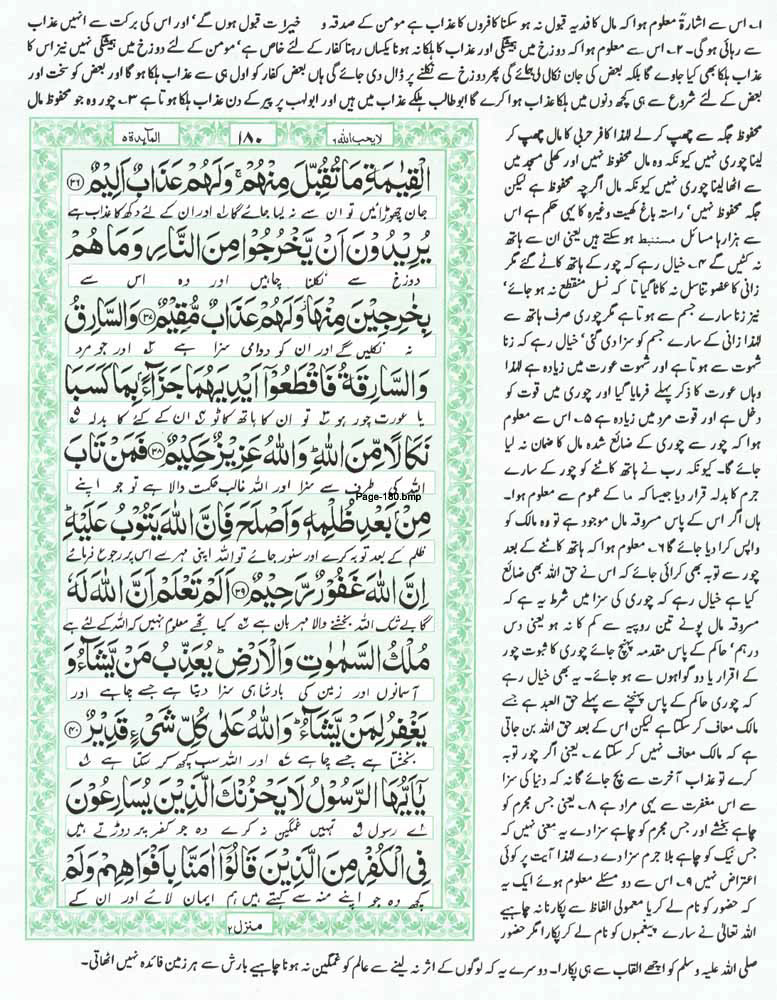 ۱۔ اس سے اشارۃً معلوم ہوا کہ مال کا فدیہ قبول نہ ہو سکنا کافروں کا عذاب ہے مومن کے صدقہ و خیرات قبول ہوں گے' اور اس کی برکت سے انہیں عذاب
سے رہائی ہو گی۔ ۲۔ اس سے معلوم ہوا کہ دوزخ میں ہمیشگی اور عذاب کا ہلکا نہ ہونا یکساں رہنا کفار کے لئے خاص ہے' مومن کے لئے دوزخ میں ہمیشگی نہیں نیز اس کا
عذاب ہلکا بھی کیا جاوے گا بلکہ بعض کی جان نکال لی جائے گی پھر دوزخ سے نکلنے پر ڈال دی جائے گی ہاں بعض کفار کو اول ہی سے عذاب ہلکا ہو گا اور بعض کو سخت اور
بعض کے لئے شروع سے ہی کچھ دنوں میں ہلکا عذاب ہوا کرے گا ابو طالب ہلکے عذاب میں ہیں اور ابولہب پر پیر کے دن عذاب ہلکا ہوتا ہے ۳۔ چور وہ جو محفوظ مال
لا یحب اللہ ۶
۱۸۰
المآئدۃ ۵
الْقِیٰمَةِ مَا تُقُبِّلَ مِنْهُمْ ۚ وَلَهُمْ عَذَابٌ اَلِیْمٌ ﴿۳۶﴾
جان چھڑائیں تو ان سے نہ لیا جائے گا اور ان کے لئے دکھ کا عذاب ہے
یُرِیْدُوْنَ اَنْ یَّخْرُجُوْا مِنَ النَّارِ وَمَا هُمْ
دوزخ سے نکلنا چاہیں اور وہ اس سے
بِخٰرِجِیْنَ مِنْهَا ۫ وَلَهُمْ عَذَابٌ مُّقِیْمٌ ﴿۳۷﴾ وَالسَّارِقُ
نہ نکلیں گے اور ان کو دوامی سزا ہے اور جو مرد
وَالسَّارِقَةُ فَاقْطَعُوْۤا اَیْدِیَهُمَا جَزَآءًۢ بِمَا كَسَبَا
یا عورت چور ہو تو ان کا ہاتھ کاٹو ان کے کئے کا بدلہ
نَكَالًا مِّنَ اللّٰهِ ؕ وَاللّٰهُ عَزِیْزٌ حَكِیْمٌ ﴿۳۸﴾ فَمَنْ تَابَ
اللہ کی طرف سے سزا اور اللہ غالب حکمت والا ہے تو جو اپنے
Page-180.bmp
مِنْۢ بَعْدِ ظُلْمِهٖ وَاَصْلَحَ فَاِنَّ اللّٰهَ یَتُوْبُ عَلَیْهِ ؕ
ظلم کے بعد توبہ کرے اور سنور جائے تو اللہ اپنی مہر سے اس پر رجوع فرمائے
اِنَّ اللّٰهَ غَفُوْرٌ رَّحِیْمٌ ﴿۳۹﴾ اَلَمْ تَعْلَمْ اَنَّ اللّٰهَ لَهٗ
گا بے شک اللہ بخشنے والا مہربان ہے کیا تجھے معلوم نہیں کہ اللہ کے لئے ہے
مُلْكُ السَّمٰوٰتِ وَالْاَرْضِ ؕ یُعَذِّبُ مَنْ یَّشَآءُ وَ
آسمانوں اور زمین کی بادشاہی سزا دیتا ہے جسے چاہے اور
یَغْفِرُ لِمَنْ یَّشَآءُ ؕ وَاللّٰهُ عَلٰى كُلِّ شَیْءٍ قَدِیْرٌ ﴿۴۰﴾
بخشتا ہے جسے چاہے اور اللہ سب کچھ کر سکتا ہے
یٰۤاَیُّهَا الرَّسُوْلُ لَا یَحْزُنْكَ الَّذِیْنَ یُسَارِعُوْنَ
اے رسول تمہیں غمگین نہ کرے وہ جو کفر پر دوڑتے ہیں
فِی الْكُفْرِ مِنَ الَّذِیْنَ قَالُوْۤا اٰمَنَّا بِاَفْوَاهِهِمْ وَلَمْ
کچھ وہ جو اپنے منہ سے کہتے ہیں ہم ایمان لائے اور ان کے
منزل ۲
محفوظ جگہ سے چھپ کر لے لہٰذا کافر حربی کا مال چھپ کر
لینا چوری نہیں کیونکہ وہ مال محفوظ نہیں اور کھلی مسجد میں
سے اٹھا لینا چوری نہیں کیونکہ مال اگرچہ محفوظ ہے لیکن
جگہ محفوظ نہیں' راستہ باغ کھیت وغیرہ کا یہی حکم ہے اس
سے ہزارہا مسائل مستنبط ہو سکتے ہیں یعنی ان سے ہاتھ
نہ کٹیں گے ۴۔ خیال رہے کہ چور کے ہاتھ کاٹے گئے مگر
زانی کا عضو تناسل نہ کاٹا گیا تا کہ نسل منقطع نہ ہو جائے'
نیز زنا سارے جسم سے ہوتا ہے مگر چوری صرف ہاتھ سے
لہٰذا زانی کے سارے جسم کو سزا دی گئی' خیال رہے کہ زنا
شہوت سے ہوتا ہے اور شہوت عورت میں زیادہ ہے لہٰذا
وہاں عورت کا ذکر پہلے فرمایا گیا اور چوری میں قوت کو
دخل ہے اور قوت مرد میں زیادہ ہے ۵۔ اس سے معلوم
ہوا کہ چور سے چوری کے ضائع شدہ مال کا ضمان نہ لیا
جائے گا۔ کیونکہ رب نے ہاتھ کاٹنے کو چور کے سارے
جرم کا بدلہ قرار دیا جیسا کہ ما کے عموم سے معلوم ہوا۔
ہاں اگر اس کے پاس مسروقہ مال موجود ہے تو وہ مالک کو
واپس کرا دیا جائے گا ۶۔ معلوم ہوا کہ ہاتھ کاٹنے کے بعد
چور سے توبہ بھی کرائی جائے کہ اس نے حق اللہ بھی ضائع
کیا ہے خیال رہے کہ چوری کی سزا میں شرط یہ ہے کہ
مسروقہ مال پونے تین روپیہ سے کم کا نہ ہو یعنی دس
درہم' حاکم کے پاس مقدمہ پہنچ جائے چوری کا ثبوت چور
کے اقرار یا دو گواہوں سے ہو جائے۔ یہ بھی خیال رہے
کہ چوری حاکم کے پاس پہنچنے سے پہلے حق العبد ہے جسے
مالک معاف کر سکتا ہے لیکن اس کے بعد حق اللہ بن جاتی
ہے کہ مالک معاف نہیں کر سکتا ۷۔ یعنی اگر چور توبہ
کرے تو عذاب آخرت سے بچ جائے گا نہ کہ دنیا کی سزا
سے اس مغفرت سے یہی مراد ہے ۸۔ یعنی جس مجرم کو
چاہے بخشے اور جس مجرم کو چاہے سزا دے یہ معنی نہیں کہ
جس نیک کو چاہے بلا جرم سزا دے دے لہٰذا آیت پر کوئی
اعتراض نہیں ۹۔ اس سے دو مسئلے معلوم ہوئے ایک یہ
کہ حضور کو نام لے کر یا معمولی الفاظ سے پکارنا نہ چاہیے
اللہ تعالیٰ نے سارے پیغمبوں کو نام لے کر پکارا مگر حضور
صلی اللہ علیہ وسلم کو اچھے القاب سے ہی پکارا۔ دوسرے یہ کہ لوگوں کے اثر نہ لینے سے عالم کو غمگین نہ ہونا چاہیے بارش سے ہر زمین فائدہ نہیں اٹھاتی۔